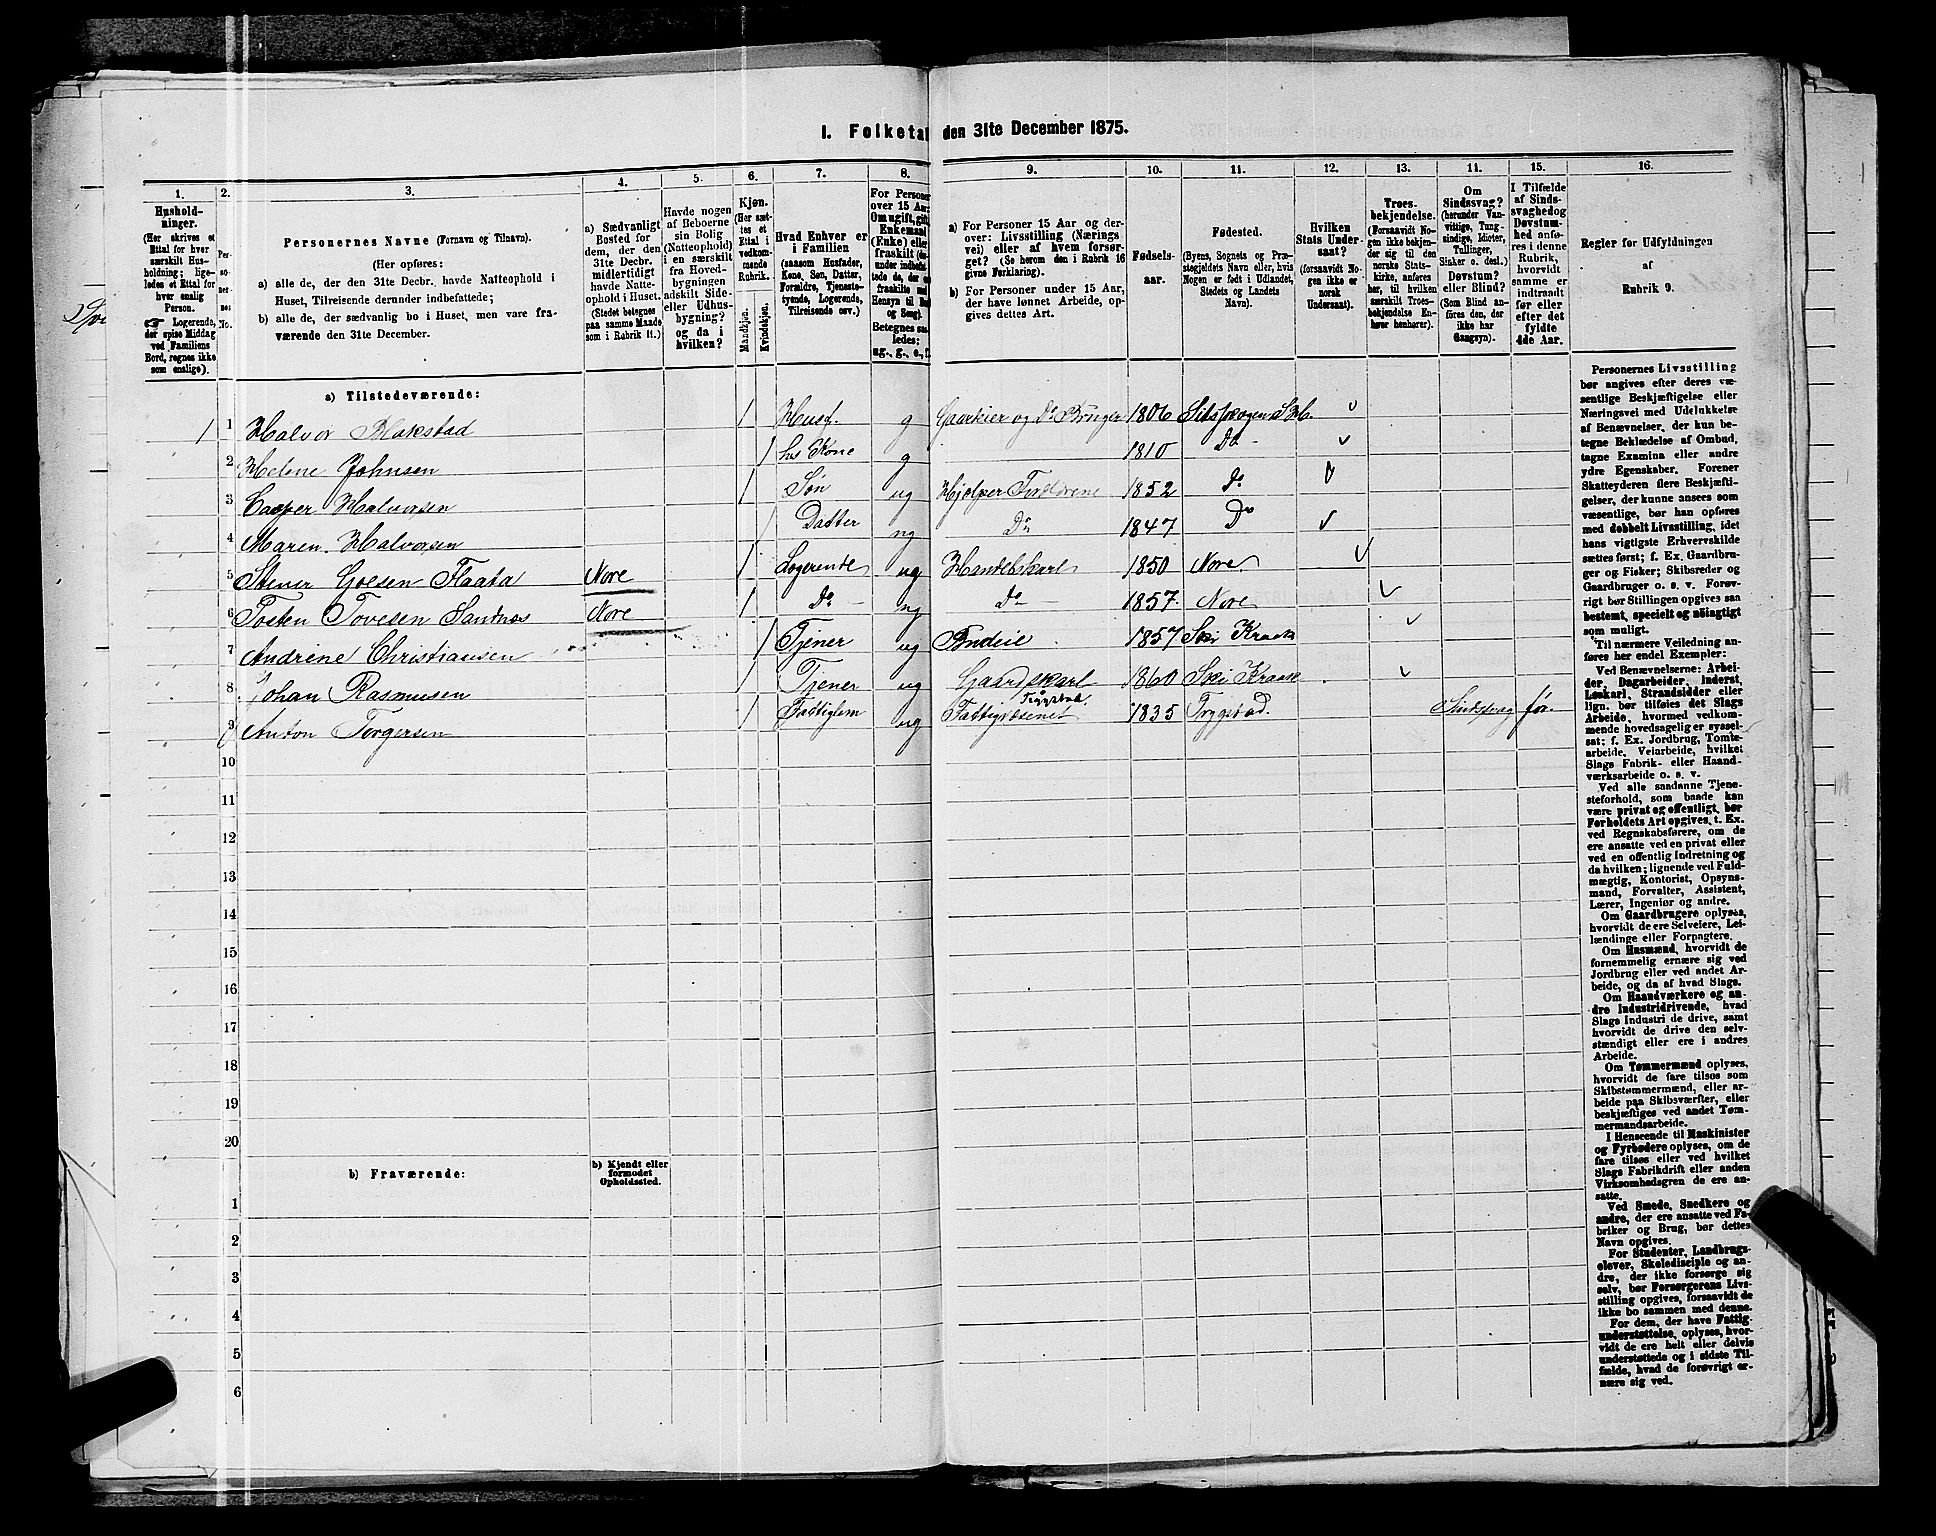 1. Folketal den 31te December 1875.
1.
Hushold-
ninger.
(Her skrives et
Ettal for hver
særskilt Hus-
holdning; lige-
ledes et Ettal for
hver enslig
Person.
☞ Logerende,
der spise Middag
ved Familiens
Bord, regnes ikke
som enslige).
2.
Per-
so-
ner-
nes
No.
3.
Personernes Navne (Fornavn og Tilnavn).
(Her opføres:
a) alle de, der den 31te Decbr. havde Natteophold i
Huset, Tilreisende derunder indbefattede;
b) alle de, der sædvanlig bo i Huset, men vare fra-
værende den 31te December.
4.
a) Sædvanligt
Bosted for
dem, der den
31te Decbr.
midlertidigt
havde Natte-
ophold i Huset.
(Stedet betegnes
paa samme Maade
som i Rubrik 11.)
5.
Havde nogen
af Beboerne
sin Bolig
(Natteophold)
i en særskilt
fra Hoved-
bygningen
adskilt Side-
eller Udhus-
bygning?
og da i
hvilken?
6.
Kjøn.
(Her sæt-
tes et
Ettal i
vedkom-
mende
Rubrik.)
Mandkjøn.
Kvindekjøn.
7.
Hvad Enhver er
i Familien
(saasom Husfader,
Kone, Søn, Datter,
Forældre, Tjeneste-
tyende, Logerende,
Tilreisende osv.)
8.
For Personer
over 15 Aar:
Om ugift, gift
Enkemand
(Enke) eller
fraskilt
Betegnes saa-
ledes:
ug., g., e., f.
9.
a) For Personer 15 Aar og der-
over: Livsstilling (Nærings
vei) eller af hvem forsør-
get? (Se herom den i Rubrik 16
givne Forklaring).
b) For Personer under 15 Aar,
der have lønnet Arbeide, op-
gives dettes Art.
10.
Fødsels-
aar.
11.
Fødested.
(Byens, Sognets og Præ-
stegjeldets Navn eller, hvis
Nogen er født i Udlandet,
Stedets og Landets
Navn).
12.
Hvilken
Stats Under-
saat?
(forsaavidt No-
gen ikke er
norsk
Undersaat).
13.
Troes-
bekjendelse.
(Forsaavidt No-
gen ikke bekjen-
der sig til den
norske Stats-
kirke, anføres
her, til hvilken
særskilt Troes-
bekjendelse En-
hver henhører).
14.
Om
Sindssvag?
(herunder Van-
vittige, Tung-
sindige, Idioter,
Tullinger,
Sinker o. desl.)
Døvstum?
eller Blind?
(Som Blind an-
føres den, der
ikke har
Gangsyn).
15.
I Tilfælde
af Sinds-
svaghed og
Døvstum-
hed anfø-
res i denne
Rubrik,
hvorvidt
samme er
indtraadt
før eller
efter det
fyldte
4de Aar.
16.
Regler for Udfyldningen
af
Rubrik 9.
a) Tilstedeværende:
1 1 Halvor Blakstad 1 Husf. g Gaardeier og Do Bruger 1806
2 Helene Johnsen 1 hs Kone g 1810 Do
3 Casper Halvorsen 1 Søn ug Hjelper Forældrene 1852 Do
4 Maren Halvorsen 1 Datter ug Do 1847 Do
5 Stener Goesen Flaata Nore 1 Logerende ug Handelskarl 1850 Nore
6 Tosten Tovesen Sandnes Nore 1 Do ug Do 1857 Nore
7 Andrine Christiansen 1 Tjener ug 1857 Ski
8 Johan Rasmusen 1 Tjener ug Gaardskarl 1860 Ski
9 Anton Torgersen 1 Fattiglem ug Fattigvæsenet Trygstad 1835 Trygstad Sindsvag før
10
11
12
13
14
15
16
17
18
19
20
b) Fraværende:
b) Kjendt eller
formodet
Opholdssted.
1
2
3
4
5
6
Personernes Livsstilling
bør angives efter deres væ-
sentlige Beskjæftigelse eller
Næringsvei med Udelukkelse
af Benævnelser, der kun be-
tegne Beklædelse af Ombud,
tagne Examina eller andre
ydre Egenskaber. Forener
Skatteyderen flere Beskjæfti-
gelser, der kunne ansees som
væsentlige, bør han opføres
med dobbelt Livsstilling, idet
hans vigtigste Erhvervskilde
sættes først; f. Ex. Gaardbru-
ger og Fisker; Skibsreder og
Gaardbruger o. s. v. Forøv-
rigt bør Stillingen opgives saa
bestemt, specielt og nøiagtigt
som muligt.
Til nærmere Veiledning an-
føres her endel Exempler:
Ved Benævnelserne: Arbei-
der, Dagarbeider, Inderst,
Løskarl, Strandsidder eller
lign. bør tilføies det Slags
Arbeide, hvormed vedkom-
mende hovedsagelig er syssel-
sat; f. Ex. Jordbrug, Tomte-
arbeide, Veiarbeide, hvilket
Slags Fabrik- eller Haand-
værksarbeide o. s. v.
Ved alle saadanne Tjene-
steforhold, som baade kan
være privat og offentligt, bør
Forholdets Art opgives, t. Ex.
ved Regnskabsførere, om de
ere ansatte ved en privat eller
ved en offentlig Indretning og
da hvilken; lignende ved Fuld-
mægtig, Kontorist, Opsyns-
mand, Forvalter, Assistent,
Lærer, Ingeniør og andre.
Om Gaardbrugere oplyses,
hvorvidt de ere Selveiere, Lei-
lændinge eller Forpagtere.
Om Husmænd, hvorvidt de
fornemmelig ernære sig ved
Jordbrug eller ved andet Ar-
beide, og da af hvad Slags.
Om Haandværkere og an-
dre Industridrivende, hvad
Slags Industri de drive, samt
hvorvidt de drive den selv-
stændigt eller ere i andres
Arbeide.
Om Tømmermænd oplyses,
hvorvidt de fare tilsøs som
Skibstømmermænd, eller ar-
beide paa Skibsværfter, eller
beskjæftiges ved andet Tøm-
mermandsarbeide.
I Henseende til Maskinister
og Fyrbødere oplyses, om de
fare tilsøs eller ved hvilket
Slags Fabrikdrift eller anden
Virksomhedsgren de ere an-
satte.
Ved Smede, Snedkere og
andre, der ere ansatte ved Fa-
briker og Brug, bør dettes
Navn opgives.
For Studenter, Landbrugs-
elever, Skoledisciple og an-
dre, der ikke forsørge sig
selv, bør Forsørgerens Livs-
stilling opgives, forsaavidt de
ikke bo sammen med denne.
For dem, der have Fattig-
understøttelse, oplyses, hvor-
vidt de ere helt eller delvis
understøttede og i sidste Til-
fælde, hvad de forøvrigt er-
nære sig ved.